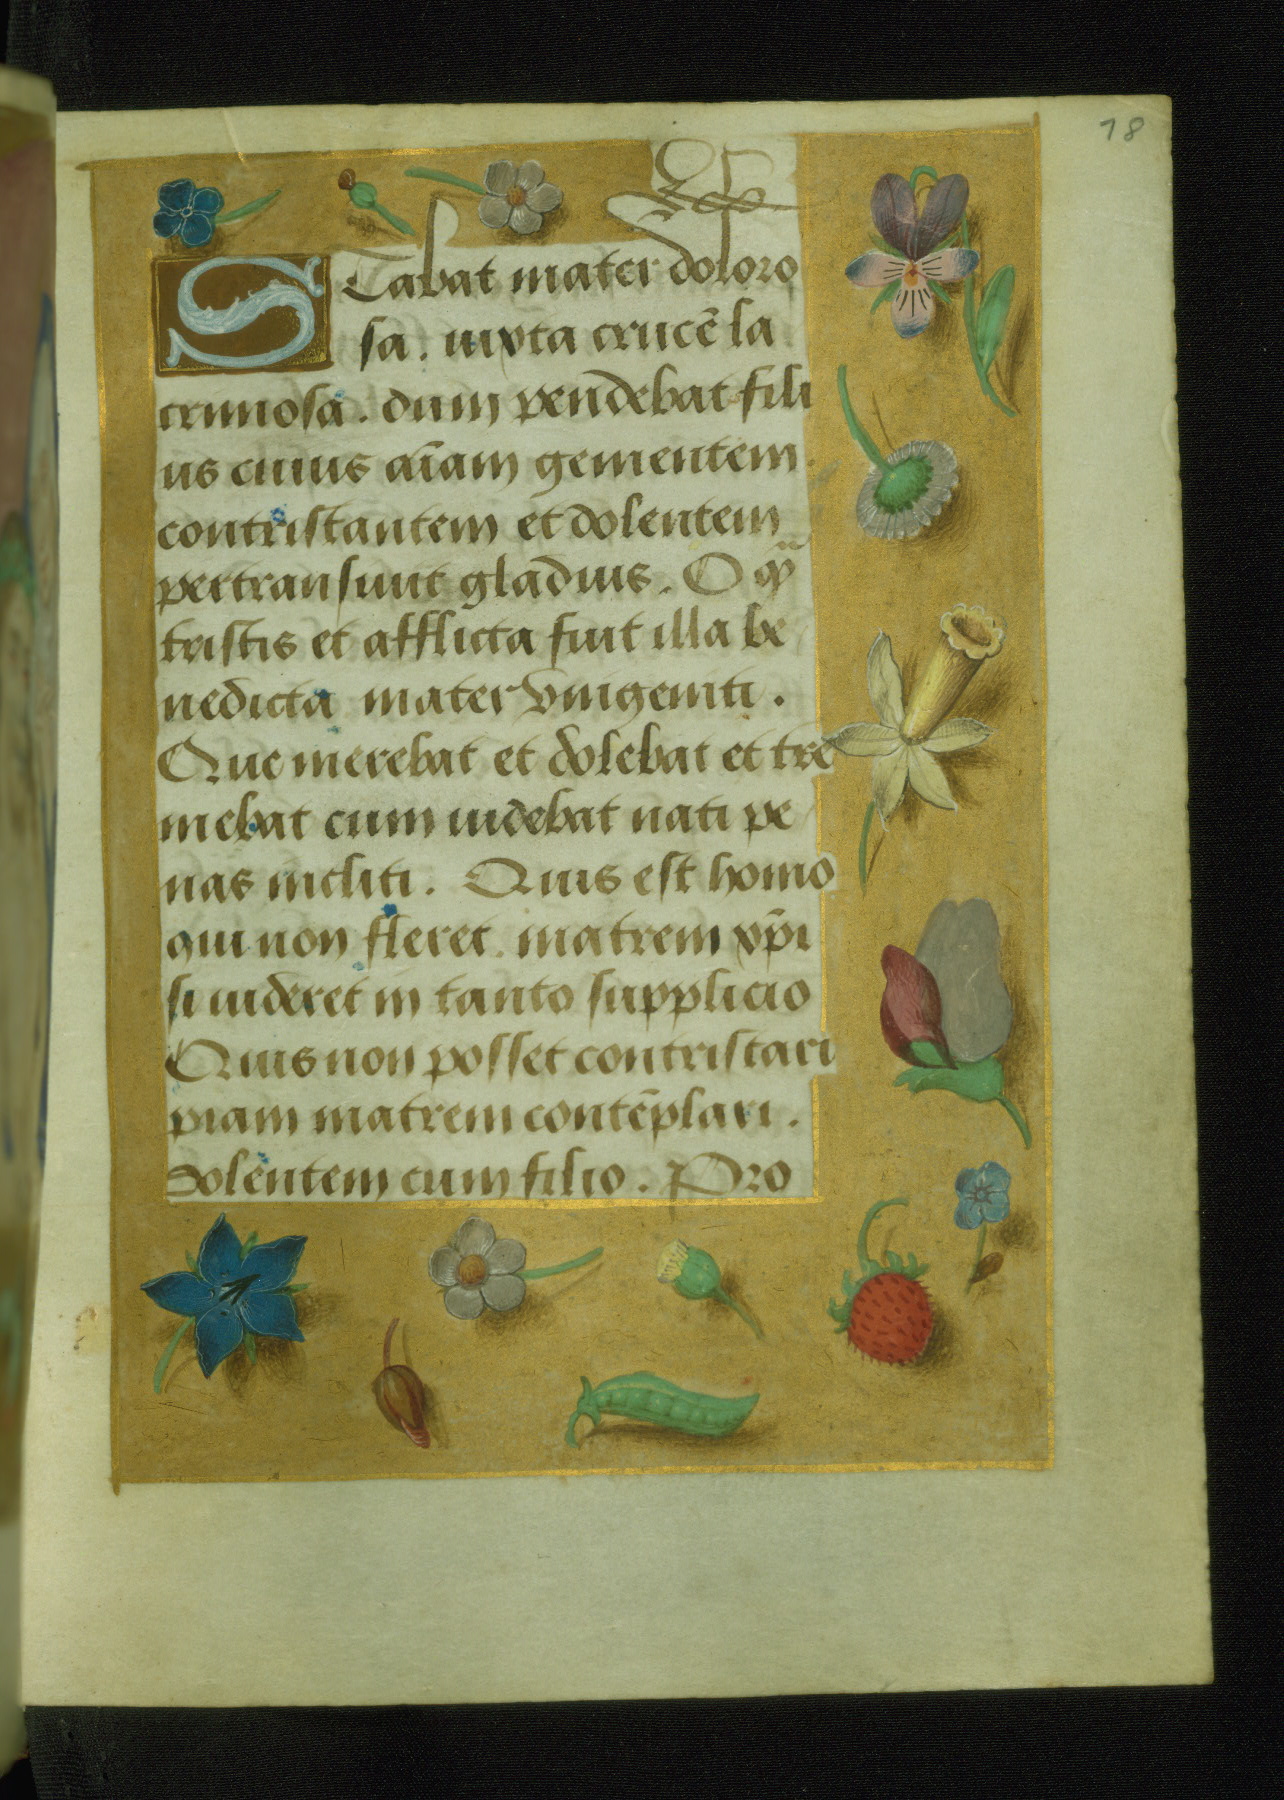 18
Stabat mater doloro
sa. iuxta crucē la
crimosa. dum pendebat fili
us cuius aīam gementem.
contristantem et dolentem
pertransiuit gladius. O qͣꝫ
tristis et afflicta fuit illa be
nedicta mater vnigeniti.
Que merebat et dolebat et tre
mebat cum uidebat nati pe
nas incliti. Quis est homo
qui non fleret. matrem xp̄i
si uideret in tanto supplicio
Quis non posset contristari
piam matrem contēplari.
dolentem cum filio. Pro